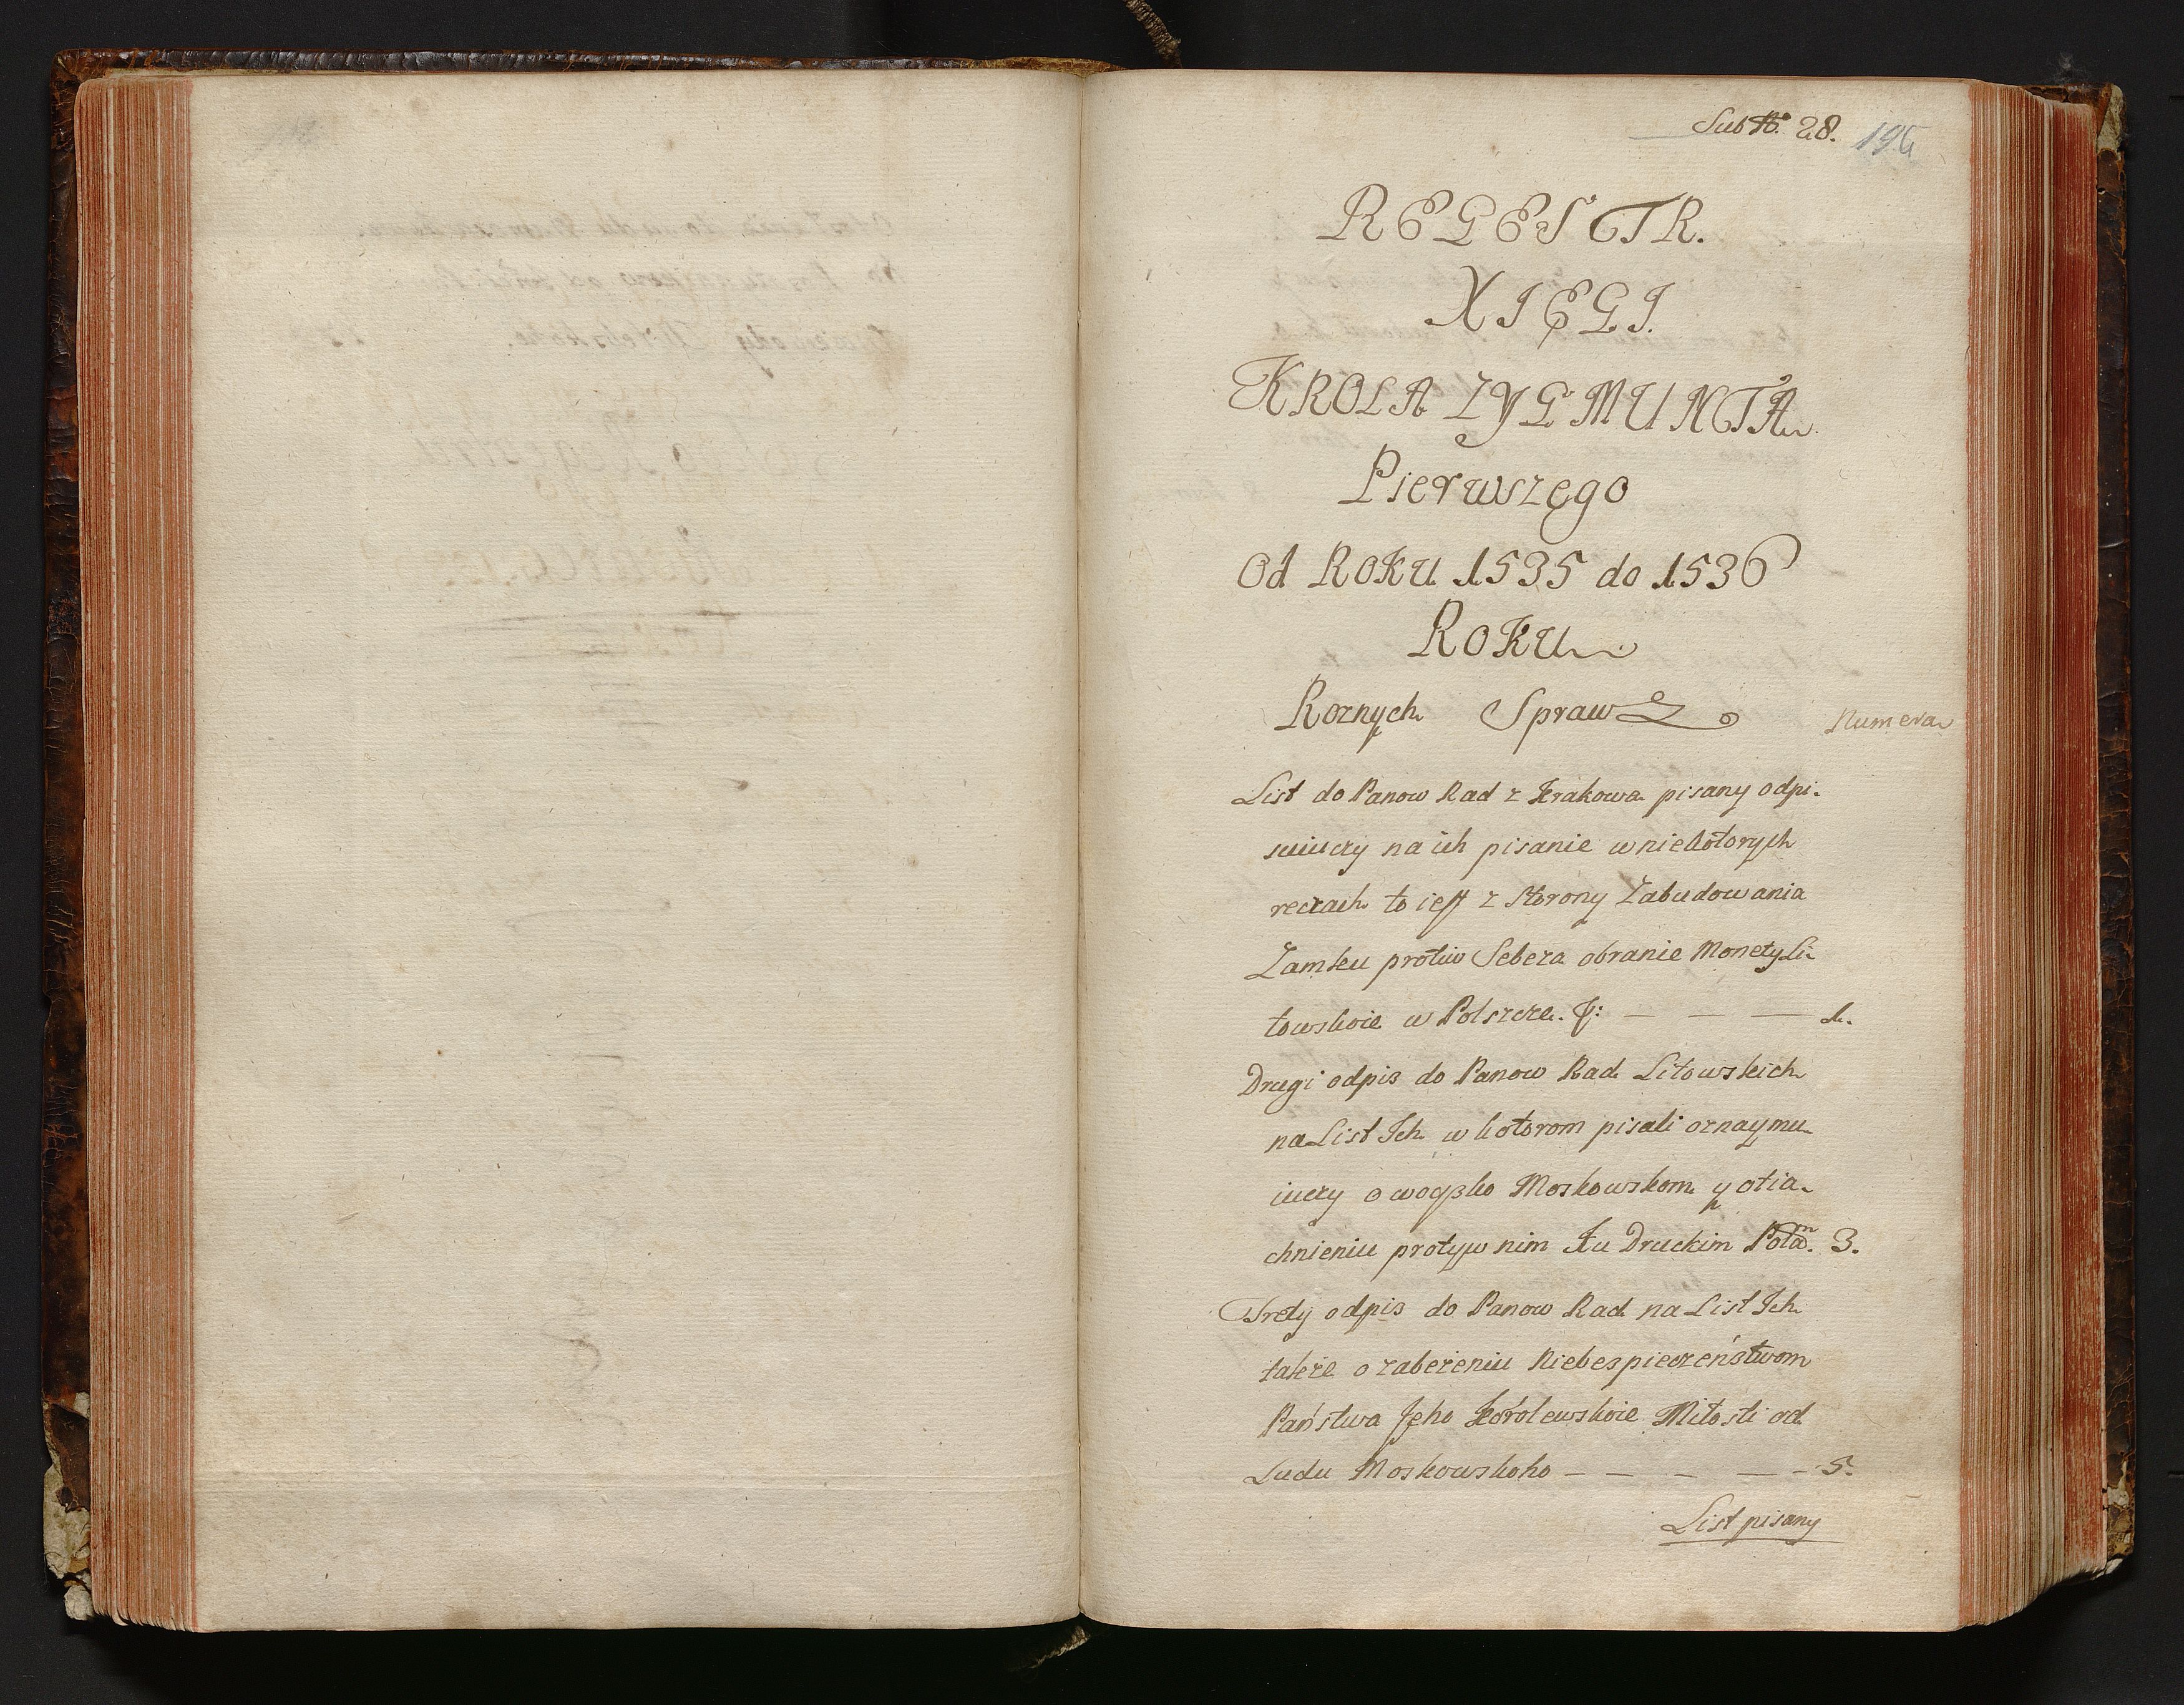 Sub No. 28. 195
REGESTR.
XIĘGI.
KROLA ZYGMUNTA
Pierwszego
Od ROKU 1535 do 1536
ROKU
Roznych Spraw
Numera
List do Panow Rad z Krakowa pisany odpi-
suiuczy na ich pisanie w niekotorych
reczach to iest z storony Zabudowania
Zamku protiw Sebeza obranie Monety Li-
towskoie w Polszcze. &: — — — 1.
Drugi odpis do Panow Rad Litowskich
na List Ich w kotorom pisali oznaymu-
iuczy o woysko Moskowskom y otia-
chnieniu protyw nim Ku Druckim Polam. 3.
Trety odpis do Panow Rad na List Ich
takze o zabezeniu Niebespieczeństwom
Państwa Jeho Korolewskoie Miłosti od
Ludu Moskowskoho — — — — — 5.
List pisany